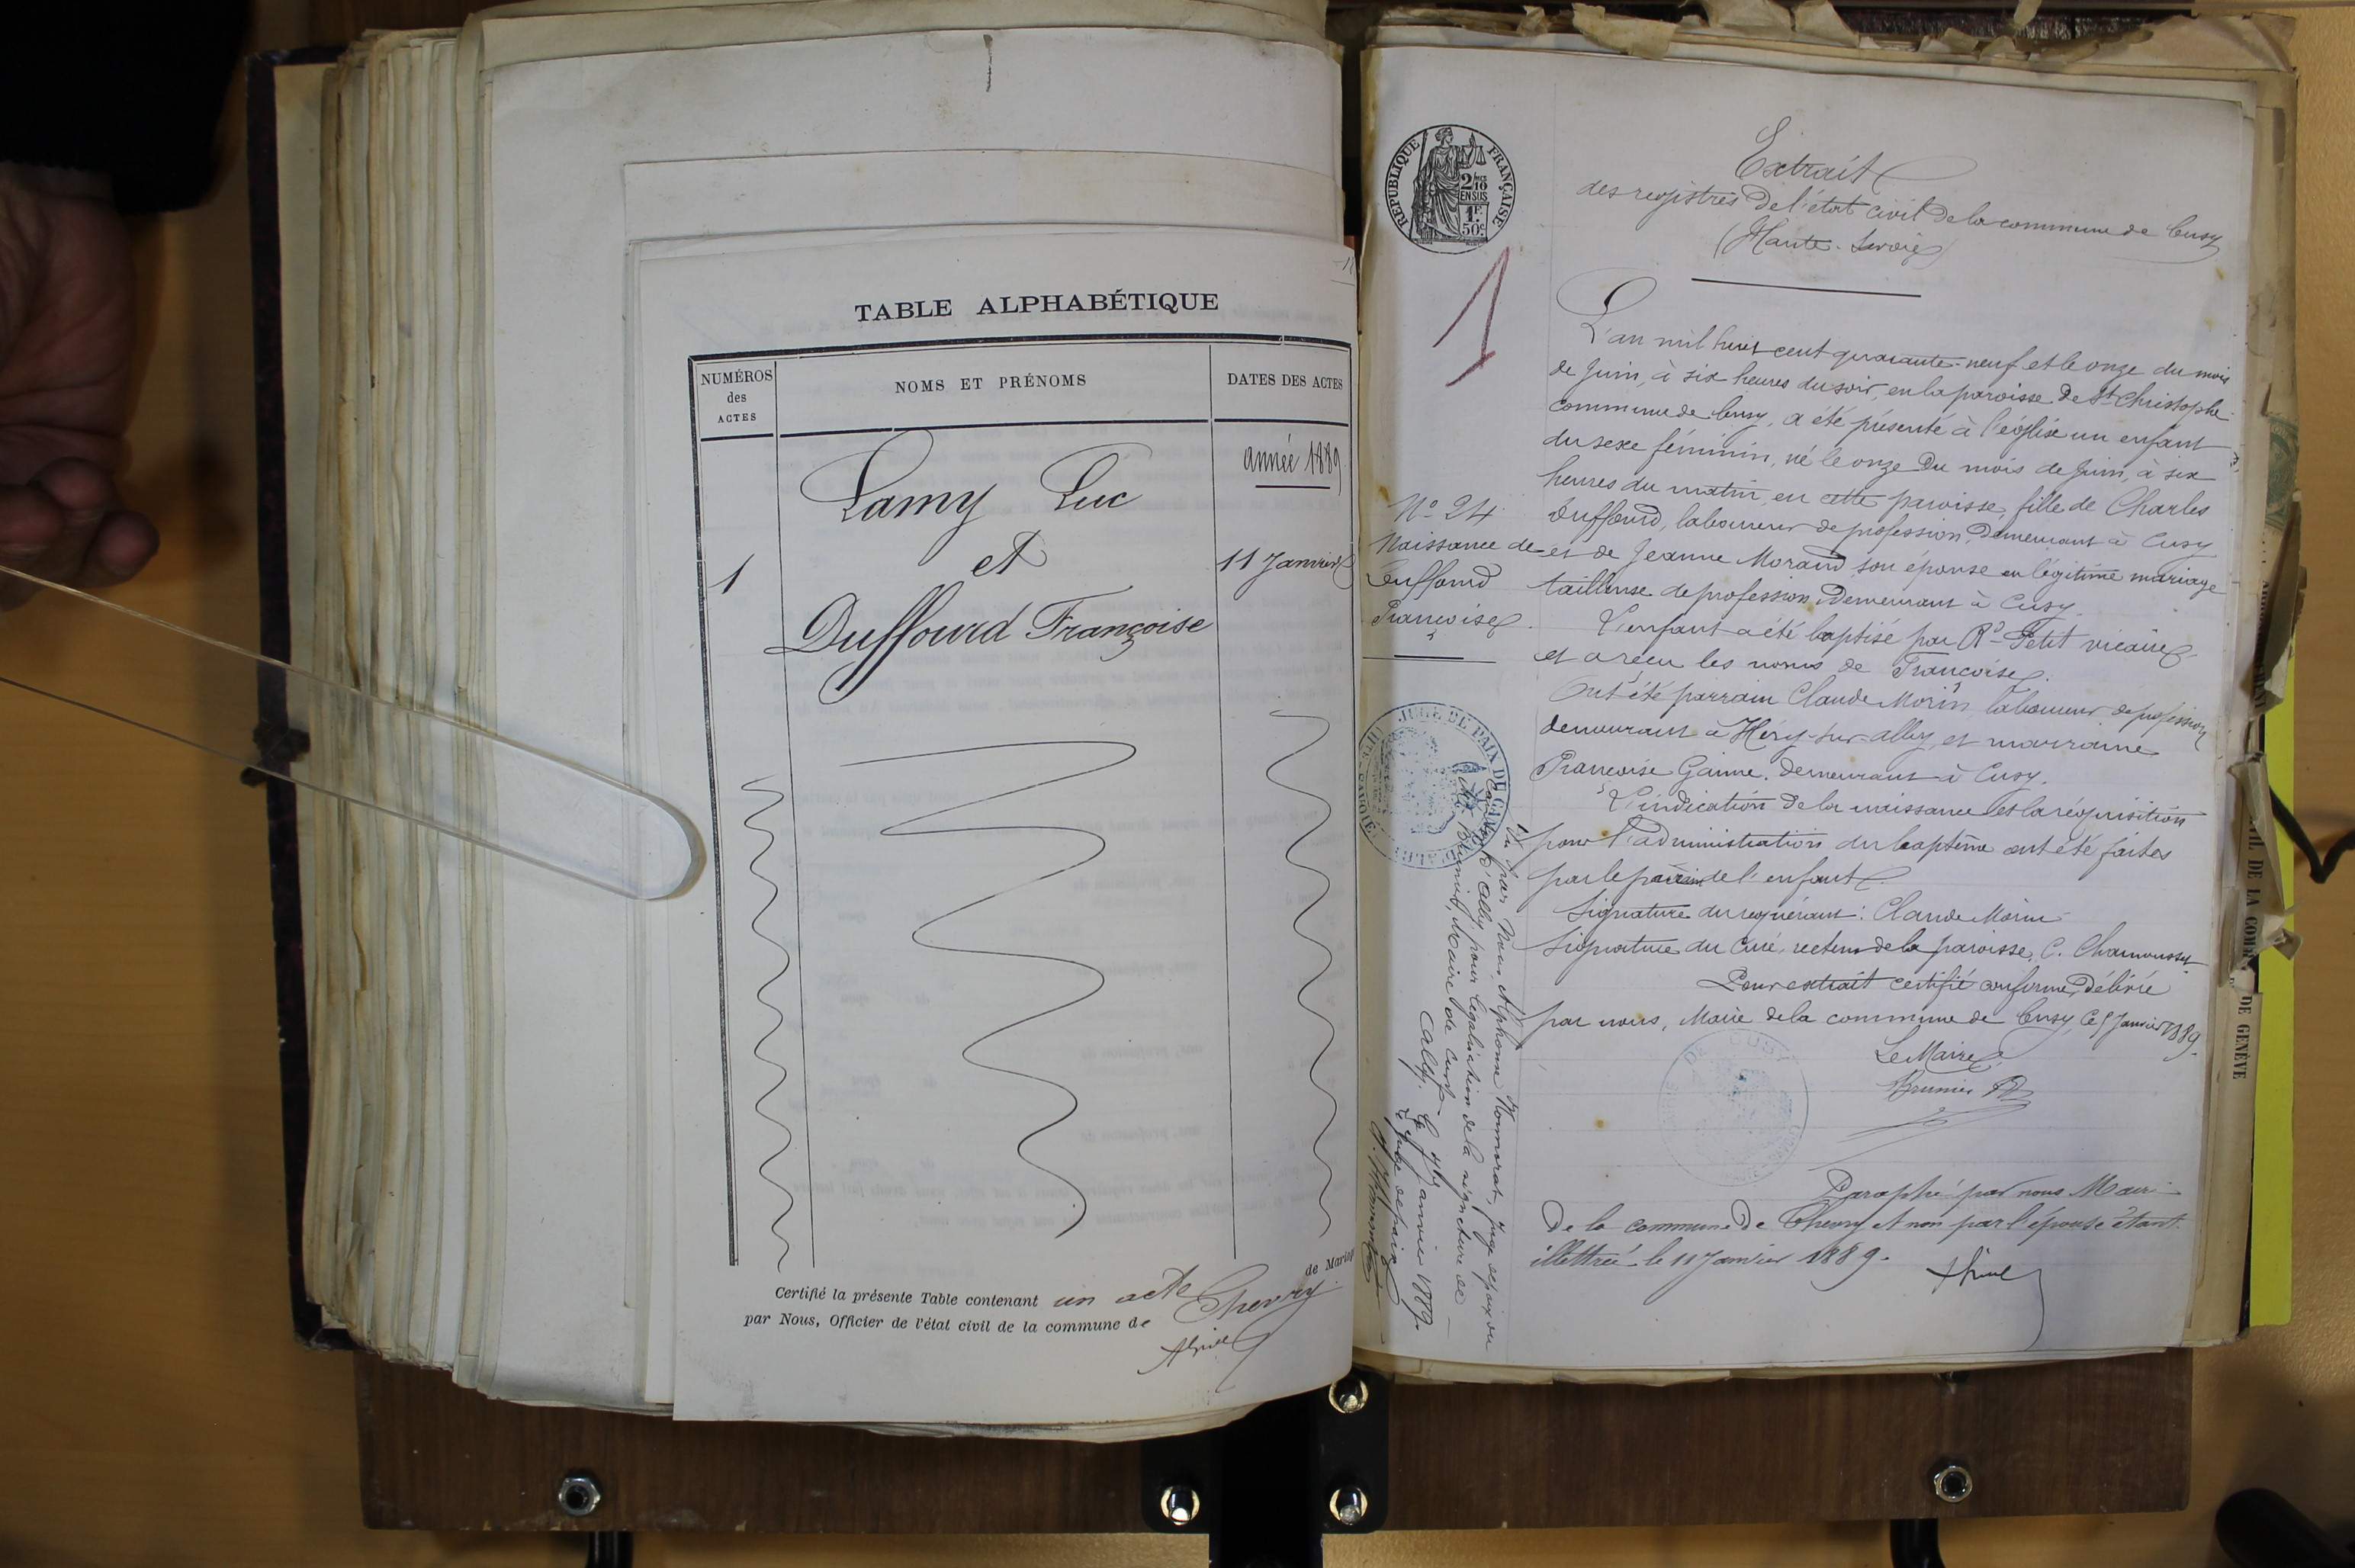 TABLE ALPHABÉTIQUE
NUMÉROS
des
ACTES
NOMS ET PRÉNOMS
DATES DES ACTES
année 1889
Lamy Luc
et
1
11 Janvier
Duffourd Françoise
de Mariage
Certifié la présente Table contenant un acte
par Nous, Officier de l'état civil de la commune de Chevry
RÉPUBLIQUE FRANÇAISE
2/10
EN SUS
1F.
50c.
1
Extrait
des registres de l'état civil de la commune de Cusy
(Haute-Savoie)
L'an mil huit cent quarante-neuf et le onze du mois
de Juin, à six heures du soir, en la paroisse de St Christophe
commune de Cusy, a été présenté à l'église un enfant
du sexe féminin, né le onze du mois de Juin, à six
heures du matin, en cette paroisse, fille de Charles
Duffourd, laboureur de profession, demeurant à Cusy
et de Jeanne Morand son épouse en légitime mariage
tailleuse de profession, demeurant à Cusy.
L'enfant a été baptisé par Rd Petit vicaire
et a reçu les noms de Françoise.
Ont été parrain Claude Morin, laboureur de profession
demeurant à Héry-sur-alby, et marraine
Françoise Gaime, demeurant à Cusy.
L'indication de la naissance et la réquisition
pour l'administration du baptême ont été faites
par le parrain de l'enfant.
Signature du requérant : Claude Morin
Signature du Curé, recteur de la paroisse, C. Chamousset.
Pour extrait certifié conforme, Délivré
par nous, Maire de la commune de Cusy, ce 5 Janvier 1889.
Le Maire
Brunier
Paraphé par nous Maire
de la commune de Chevry et non par l'épouse étant
illettrée le 11 Janvier 1889.
No 24
Naissance de
Duffourd
Françoise
JUGE DE PAIX DE CANTON D'ALBY
Vu par Nous, Alphonse Mommorat, Juge de paix du
Canton d'Alby, pour légalisation de la signature de
Mr Brunier, Maire de Cusy.
Alby, le 7 Janvier 1889.
Le Juge de paix
DE CUSY
DE GENÈVE